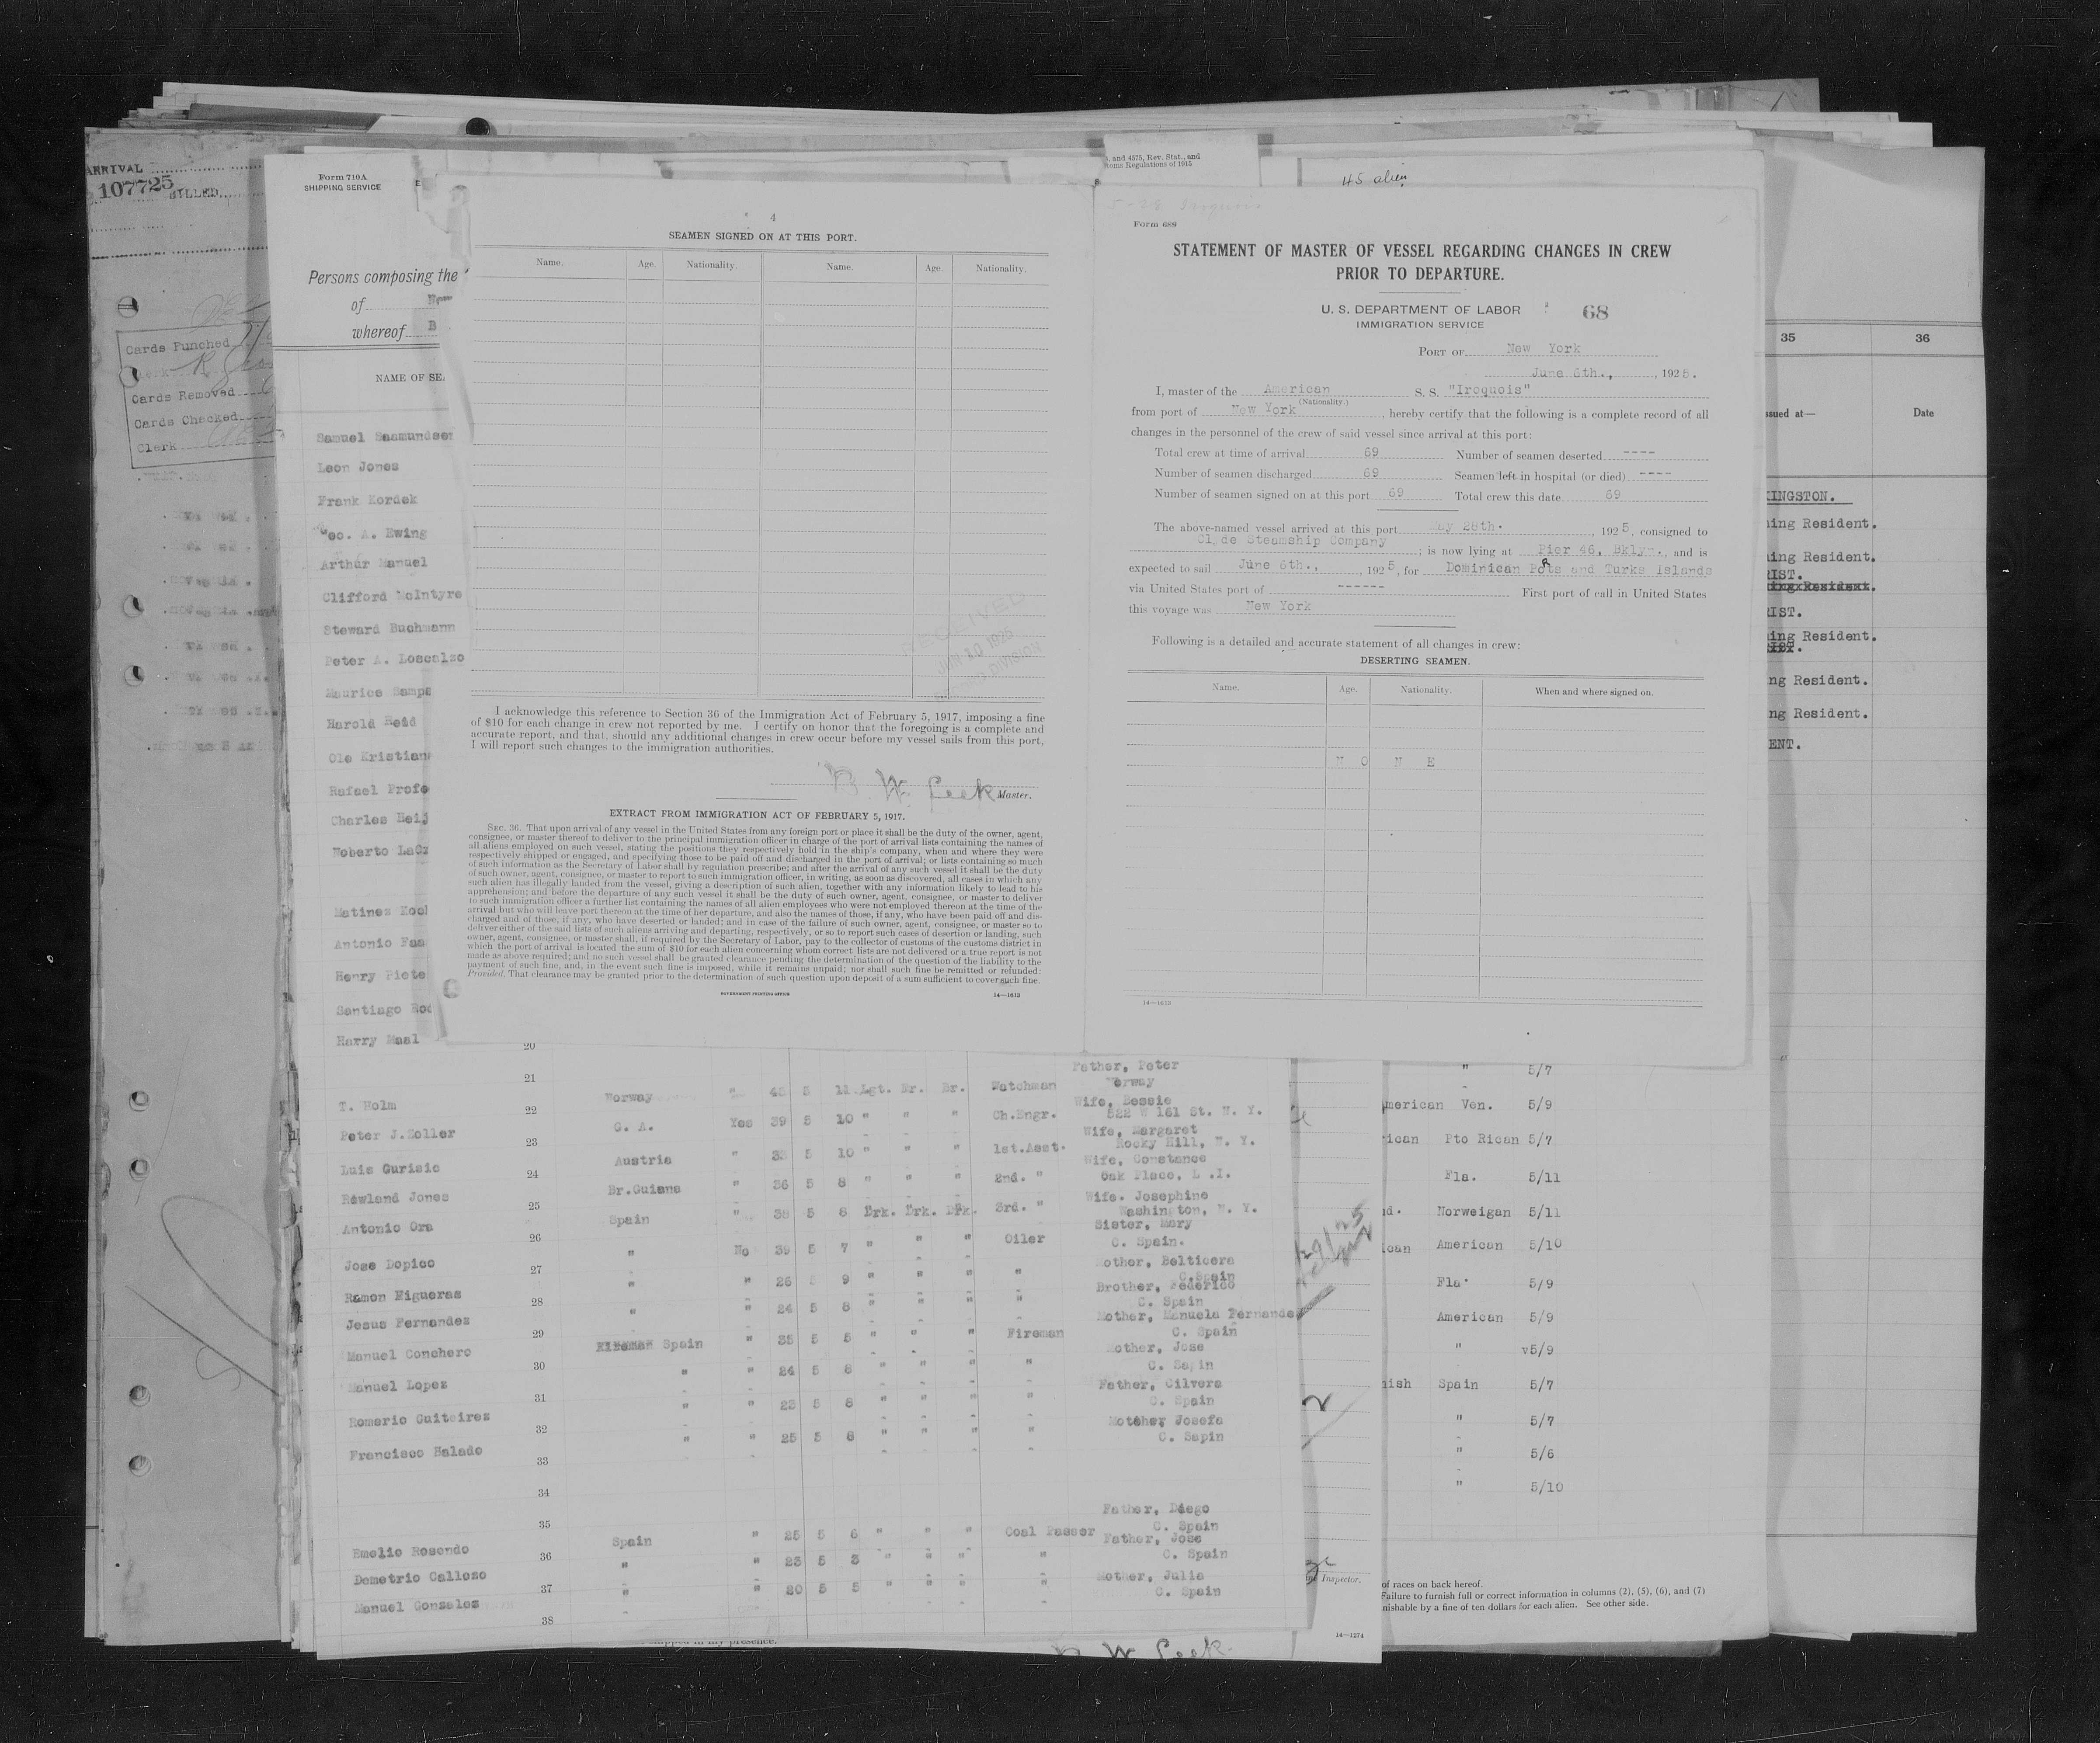 ARRIVAL
107725
BILLED
Cards Punched
Cards Removed
Cards Checked
Clerk
Form 710A
SHIPPING SERVICE
Persons composing the
of
whereof B
NAME OF SE
Leon Jones
Frank Kordek
Geo. A. Ewing
Arthur Manuel
Clifford McIntyre
Steward Buchmann
Peter A. Loscalzo
Maurice Samps
Harold Reid
Ole Kristian
Rafael Profe
Charles Heij
Noberto LaCz
Matinez
Antonio Faa
Henry Piete
Santiago Rod
Harry Maal
4
SEAMEN SIGNED ON AT THIS PORT.
Name. Age. Nationality. Name. Age. Nationality.
RECEIVED
JUN 10 1925
DIVISION
I acknowledge this reference to Section 36 of the Immigration Act of February 5, 1917, imposing a fine
of $10 for each change in crew not reported by me. I certify on honor that the foregoing is a complete and
accurate report, and that, should any additional changes in crew occur before my vessel sails from this port,
I will report such changes to the immigration authorities.
B. W. Leek Master.
EXTRACT FROM IMMIGRATION ACT OF FEBRUARY 5, 1917.
SEC. 36. That upon arrival of any vessel in the United States from any foreign port or place it shall be the duty of the owner, agent,
consignee, or master thereof to deliver to the principal immigration officer in charge of the port of arrival lists containing the names of
all aliens employed on such vessel, stating the positions they respectively hold in the ship's company, when and where they were
respectively shipped or engaged, and specifying those to be paid off and discharged in the port of arrival; or lists containing so much
of such information as the Secretary of Labor shall by regulation prescribe; and after the arrival of any such vessel it shall be the duty
of such owner, agent, consignee, or master to report to such immigration officer, in writing, as soon as discovered, all cases in which any
such alien has illegally landed from the vessel, giving a description of such alien, together with any information likely to lead to his
apprehension; and before the departure of any such vessel it shall be the duty of such owner, agent, consignee, or master to deliver
to such immigration officer a further list containing the names of all alien employees who were not employed thereon at the time of the
arrival but who will leave port thereon at the time of her departure, and also the names of those, if any, who have been paid off and dis-
charged and of those, if any, who have deserted or landed; and in case of the failure of such owner, agent, consignee, or master so to
deliver either of the said lists of such aliens arriving and departing, respectively, or so to report such cases of desertion or landing, such
owner, agent, consignee, or master shall, if required by the Secretary of Labor, pay to the collector of customs of the customs district in
which the port of arrival is located the sum of $10 for each alien concerning whom correct lists are not delivered or a true report is not
made as above required; and no such vessel shall be granted clearance pending the determination of the question of the liability to the
payment of such fine, and, in the event such fine is imposed, while it remains unpaid; nor shall such fine be remitted or refunded:
Provided, That clearance may be granted prior to the determination of such question upon deposit of a sum sufficient to cover such fine.
GOVERNMENT PRINTING OFFICE 14—1613
, and 4575, Rev. Stat., and
toms Regulations of 1915
45 alien
5-28 Iroquois
Form 689
STATEMENT OF MASTER OF VESSEL REGARDING CHANGES IN CREW
PRIOR TO DEPARTURE.
U. S. DEPARTMENT OF LABOR 68
IMMIGRATION SERVICE
PORT OF New York
June 6th., , 1925.
I, master of the American S. S. "Iroquois"
(Nationality.)
from port of New York , hereby certify that the following is a complete record of all
changes in the personnel of the crew of said vessel since arrival at this port:
Total crew at time of arrival 69 Number of seamen deserted ----
Number of seamen discharged 69 Seamen left in hospital (or died) ----
Number of seamen signed on at this port 69 Total crew this date 69
The above-named vessel arrived at this port May 28th. , 1925, consigned to
Clyde Steamship Company ; is now lying at Pier 46, Bklyn., and is
expected to sail June 6th., , 1925, for Dominican PoRts and Turks Islands
via United States port of ------ First port of call in United States
this voyage was New York
Following is a detailed and accurate statement of all changes in crew:
DESERTING SEAMEN.
Name. Age. Nationality. When and where signed on.
N O N E
14—1613
35 36
ssued at— Date
KINGSTON.
ning Resident.
ning Resident.
RIST.
RIST.
ning Resident.
ng Resident.
ng Resident.
ENT.
20
21
Father, Peter
T. Holm Norway " 45 5 11 Lgt. Br. Br. Watchman Norway
22
Wife, Bessie
Peter J.Koller G. A. Yes 39 5 10 " " " Ch.Engr. 522 W 161 St. N. Y.
23
Wife, Margaret
Luis Gurisic Austria " 33 5 10 " " " 1st.Asst. Rocky Hill, N. Y.
24
Wife, Constance
Rowland Jones Br.Guiana " 36 5 8 " " " 2nd. " Oak Place, L .I.
25
Wife. Josephine
Antonio Ora Spain " 38 5 8 Drk. Drk. Drk. 3rd. " Washington, N. Y.
26
Sister, Mary
Jose Dopico " No 39 5 7 " " " Oiler C. Spain.
27
Mother, Belticera
Ramon Figueras " " 26 5 9 " " " " C.Spain
28
Brother, Federico
Jesus Fernandez " " 24 5 8 " " " " C. Spain
29
Mother, Manuela Fernande
Manuel Conchero Fireman Spain " 35 5 5 " " " Fireman C. Spain
30
Mother, Jose
Manuel Lopez " " 24 5 8 " " " " C. Sapin
31
Father, Cilvera
Romario Guiteirez " " 23 5 8 " " " " C. Spain
32
Mother Josefa
Francisco Balado " " 25 5 8 " " " " C. Sapin
33
34
35
Father, Diego
Emelio Rosendo Spain " 25 5 6 " " " Coal Passer C. Spain
36
Father, Jose
Demetrio Callozo " " 23 5 3 " " " " C. Spain
37
Mother, Julia
Manuel Gonzales " " 20 5 5 " " " " C. Spain
38
shipped in my presence.
B W Leek
" 5/7
merican Ven. 5/9
rican Pto Rican 5/7
Fla. 5/11
d. Norweigan 5/11
ican American 5/10
Fla. 5/9
American 5/9
" v5/9
nish Spain 5/7
" 5/7
" 5/6
" 5/10
Inspector.
of races on back hereof.
Failure to furnish full or correct information in columns (2), (5), (6), and (7)
nishable by a fine of ten dollars for each alien. See other side.
14—1274